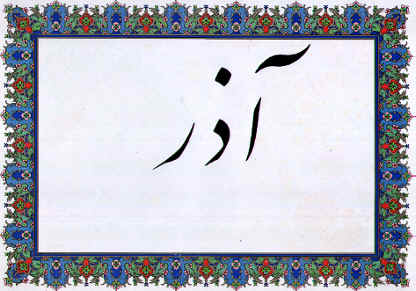 آذر